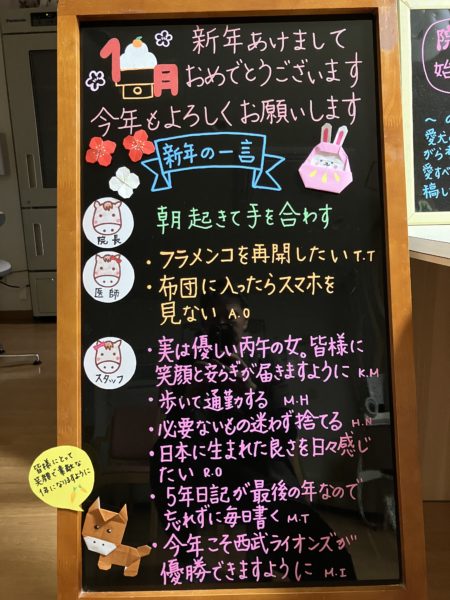 1月
新年あけまして
おめでとうございます
今年もよろしくお願いします
新年の一言
院長
朝起きて手を合わす
医師
・フラメンコを再開したい T.T
・布団に入ったらスマホを
見ない A.O
スタッフ
・実は優しい丙午の女。皆様に
笑顔と安らぎが届きますように K.M
・歩いて通勤する M.H
・必要ないもの迷わず捨てる M.N
・日本に生まれた良さを日々感じ
たい R.O
・5年日記が最後の年なので
忘れずに毎日書く M.T
・今年こそ西武ライオンズが
優勝できますように M.I
皆様にとって
笑顔で素敵な
1年になりますように
院
始
愛犬
がら
愛すべ